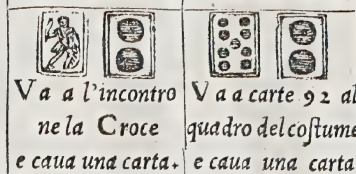 Va a l'incontro
ne la Croce
e caua una carta.
Va a carte 92 al
quadro del coſtume
e caua una carta